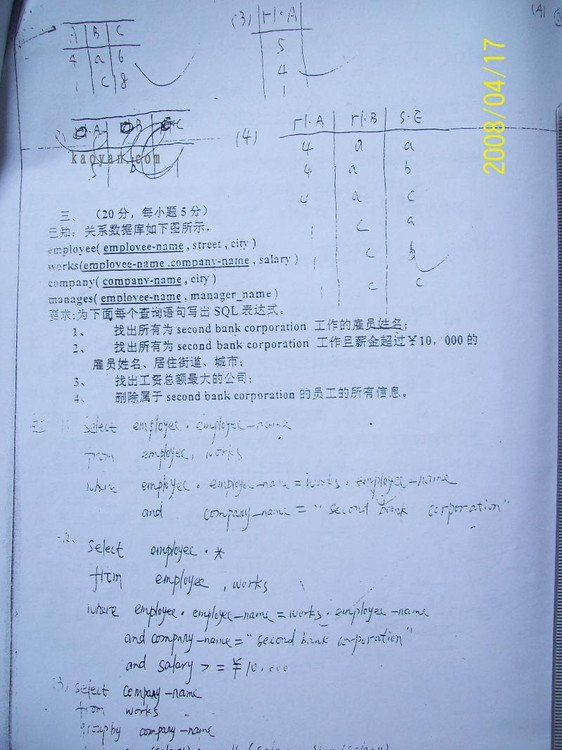 (3) r1.A
(4)
A B C
5
4 a 6
4
1 c 8
1
2008/04/17
(4) r1.A r1.B s.E
4 a a
kaoyan.com
4 a b
4 a c
1 c a
1 c b
1 c c
三、 (20分，每小题5分)
已知：关系数据库如下图所示，
employee( employee-name , street , city )
works(employee-name ,company-name , salary )
company( company-name , city )
manages( employee-name , manager_name )
要求:为下面每个查询语句写出 SQL 表达式。
1、 找出所有为 second bank corporation 工作的雇员姓名；
2、 找出所有为 second bank corporation 工作且薪金超过￥10，000 的
雇员姓名、居住街道、城市；
3、 找出工资总额最大的公司；
4、 删除属于 second bank corporation 的员工的所有信息。
三 select employee.employee-name
from employee, works
where employee.employee-name = works.employee-name
and company-name = "second bank corporation"
2. select employee.*
from employee, works
where employee.employee-name = works.employee-name
and company-name = "second bank corporation"
and salary >= ￥10,000
(3) select company-name
from works
groupby company-name